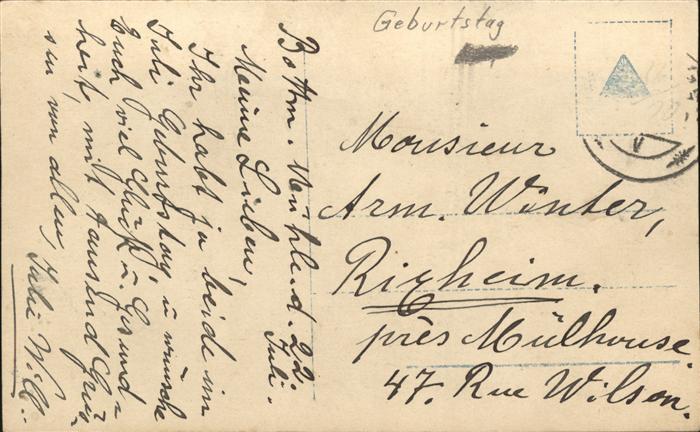 Geburtstag
Bottm. Mühle. d. 22. Juli.
Meine Lieben,
Ihr habt ja beide im
Juli Geburtstag, u. wünsche
Euch viel Glück u. Gesund-
heit, mit tausend Grüs-
sen von allen, Julie W.
Monsieur
Arm. Winter,
Rixheim.
près Mülhouse.
47. Rue Wilson.